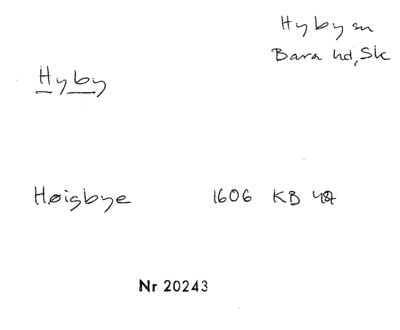 Hyby sn
Bara hd, Sk
Hyby
Høigbye 1606 KB
Nr 20243